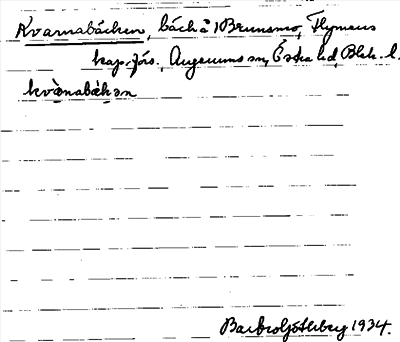 Kvarnabäcken, bäck å 1 Brunsmo, Flymens
kap. förs., Augerums sn, Östra hd, Blek. l.
kvànabäkən
Barbro Götherberg 1934.